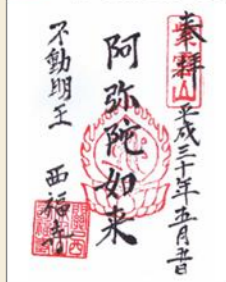 奉拝
紫雲山
平成三十年五月五日
阿弥陀如来
不動明王
西福寺